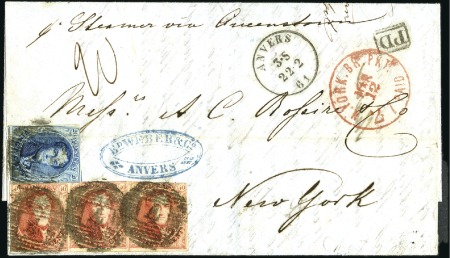 pr Steamer via Queenstown
ANVERS
3-S
22-2
61
PD
YORK. BR. PKT.
MAR
12
PAID
Messrs A C Rossire & Co
ED. WEBER & Co.
ANVERS
New York